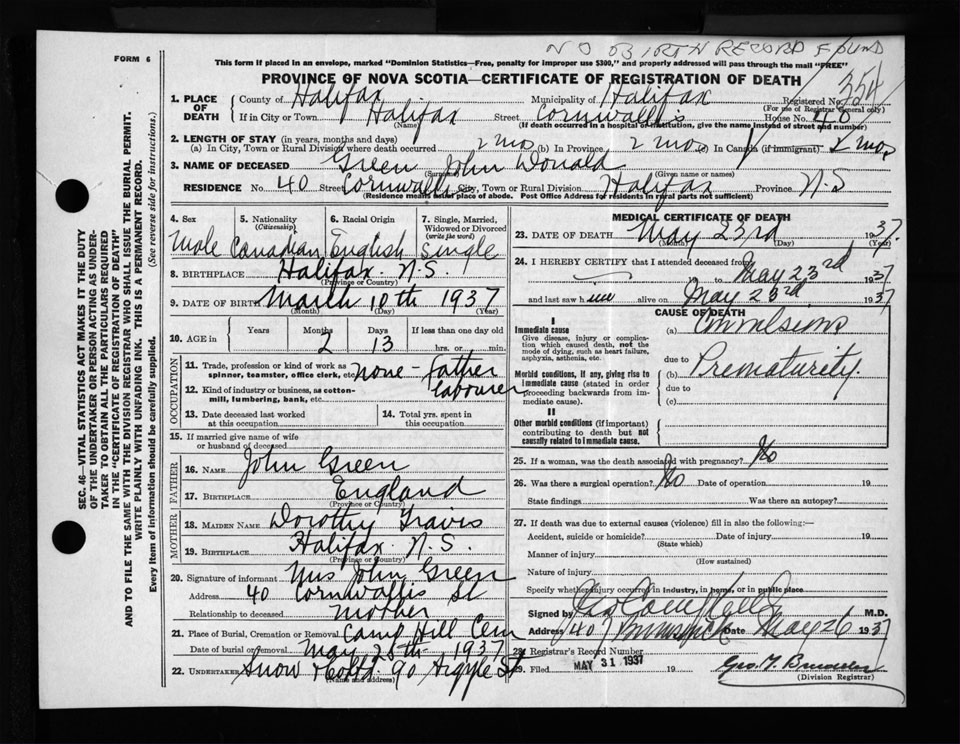 NO BIRTH RECORD FOUND
FORM 6
This form if placed in an envelope, marked "Dominion Statistics—Free, penalty for improper use $300," and properly addressed will pass through the mail "FREE"
PROVINCE OF NOVA SCOTIA—CERTIFICATE OF REGISTRATION OF DEATH
354
1. PLACE OF DEATH
County of Halifax Municipality of Halifax Registered No.
(For use of Registrar General only)
If in City or Town Halifax Street Cornwallis House No. 40
(Name) (If death occurred in a hospital or institution, give the name instead of street and number)
2. LENGTH OF STAY (in years, months and days)
(a) In City, Town or Rural Division where death occurred 2 mo. (b) In Province 2 mo. (c) In Canada (if immigrant) 2 mo.
3. NAME OF DECEASED Green John Donald
(Surname) (Given name or names)
RESIDENCE No. 40 Street Cornwallis City, Town or Rural Division Halifax Province N.S
(Residence means usual place of abode. Post Office Address for residents in rural parts not sufficient)
4. Sex
Male
5. Nationality (Citizenship)
Canadian
6. Racial Origin
English
7. Single, Married, Widowed or Divorced (write the word)
Single
8. BIRTHPLACE Halifax N.S.
(Province or Country)
9. DATE OF BIRTH March 10th 1937
(Month) (Day) (Year)
10. AGE in Years Months 2 Days 13 If less than one day old
hrs. or min.
OCCUPATION
11. Trade, profession or kind of work as spinner, teamster, office clerk, etc. none - father
labourer
12. Kind of industry or business, as cotton-mill, lumbering, bank, etc.
13. Date deceased last worked at this occupation
14. Total yrs. spent in this occupation
15. If married give name of wife or husband of deceased
FATHER
16. NAME John Green
17. BIRTHPLACE England
(Province or Country)
MOTHER
18. MAIDEN NAME Dorothy Travis
19. BIRTHPLACE Halifax N.S.
(Province or Country)
20. Signature of informant Mrs John Green
Address 40 Cornwallis St
Relationship to deceased Mother
21. Place of Burial, Cremation or Removal Camp Hill Cem
Date of burial or removal May 25th 1937
22. UNDERTAKER Snow & Co Ltd 90 Argyle St
(Name and address)
MEDICAL CERTIFICATE OF DEATH
23. DATE OF DEATH May 23rd 1937.
(Month) (Day) (Year)
24. I HEREBY CERTIFY that I attended deceased from
to May 23rd 1937
and last saw h im alive on May 23rd 1937
CAUSE OF DEATH
I
Immediate cause
Give disease, injury or complication which caused death, not the mode of dying, such as heart failure, asphyxia, asthenia, etc.
(a) Convulsions
due to
Morbid conditions, if any, giving rise to immediate cause (stated in order proceeding backwards from immediate cause).
(b) Prematurity.
due to
(c)
II
Other morbid conditions (if important) contributing to death but not causally related to immediate cause.
25. If a woman, was the death associated with pregnancy? No
26. Was there a surgical operation? No Date of operation 19
State findings Was there an autopsy?
27. If death was due to external causes (violence) fill in also the following:—
Accident, suicide or homicide? Date of injury 19
(State which)
Manner of injury
(How sustained)
Nature of injury
Specify whether injury occurred in Industry, in home, or in public place
Signed by M.D.
Address 407 Brunswick Date May 26 1937
28. Registrar's Record Number
29. Filed MAY 31 1937 19
(Division Registrar)
SEC. 46—VITAL STATISTICS ACT MAKES IT THE DUTY
OF THE UNDERTAKER OR PERSON ACTING AS UNDERTAKER TO OBTAIN ALL THE PARTICULARS REQUIRED
IN THE "CERTIFICATE OF REGISTRATION OF DEATH"
AND TO FILE THE SAME WITH THE DIVISION REGISTRAR WHO SHALL ISSUE THE BURIAL PERMIT.
WRITE PLAINLY WITH UNFADING INK. THIS IS A PERMANENT RECORD.
Every item of information should be carefully supplied. (See reverse side for instructions.)